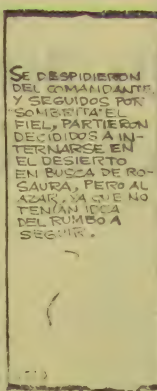 SE DESPIDIERON
DEL COMANDANTE
Y SEGUIDOS POR
"SOMBRITA" EL
FIEL, PARTIERON
DECIDIDOS A IN-
TERNARSE EN
EL DESIERTO
EN BUSCA DE RO-
SAURA, PERO AL
AZAR, YA QUE NO
TENÍAN IDEA
DEL RUMBO A
SEGUIR.